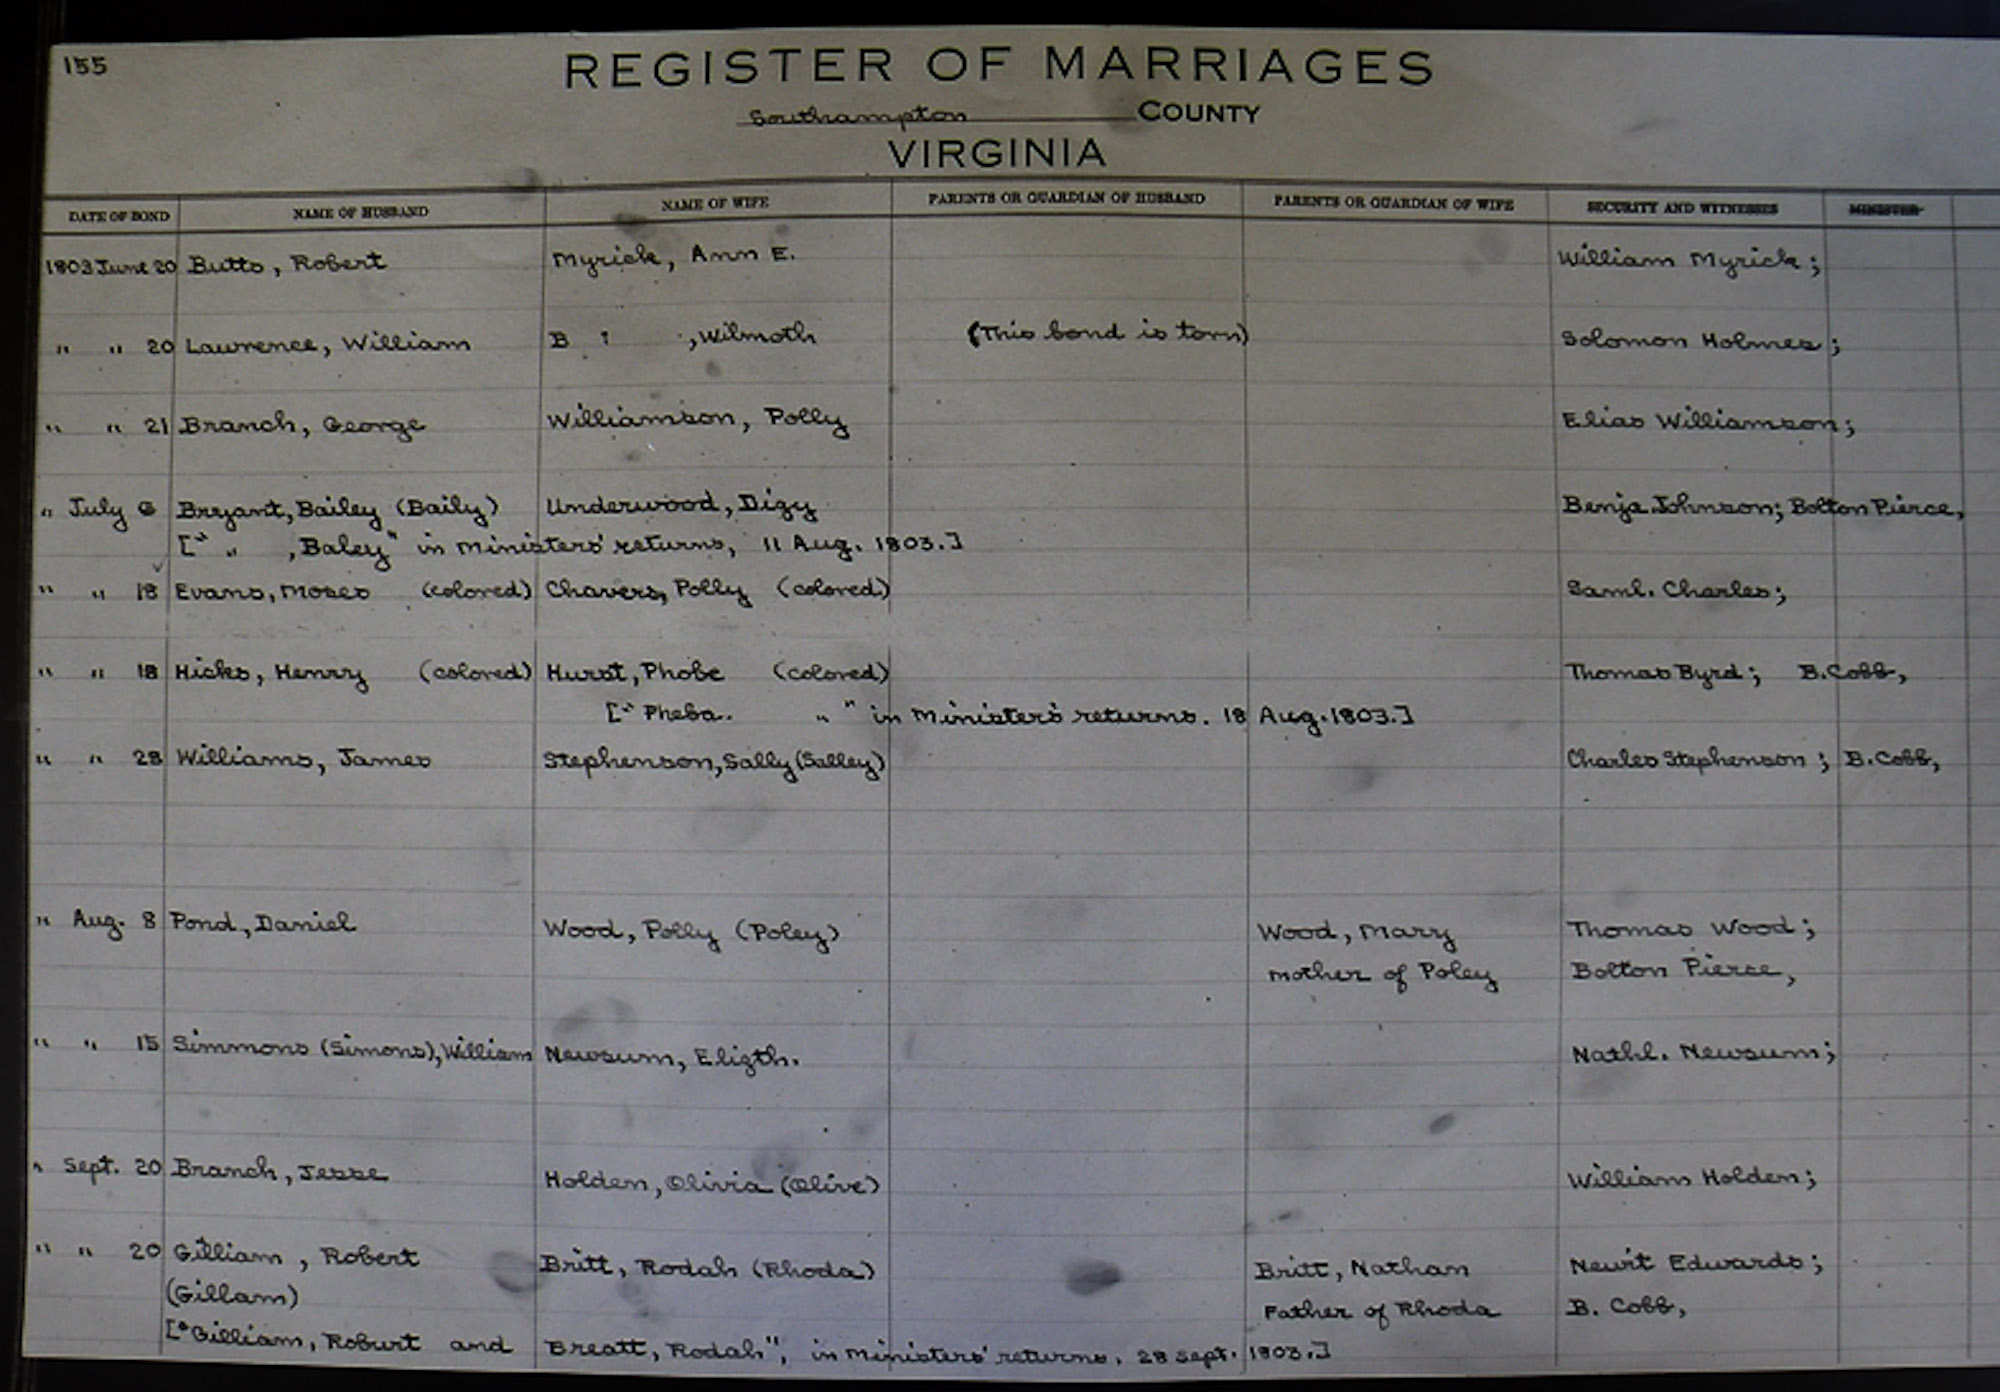 155
REGISTER OF MARRIAGES
Southampton COUNTY
VIRGINIA
DATE OF BOND NAME OF HUSBAND NAME OF WIFE PARENTS OR GUARDIAN OF HUSBAND PARENTS OR GUARDIAN OF WIFE SECURITY AND WITNESSES MINISTER
1803 June 20 Butts, Robert Myrick, Ann E. William Myrick;
" " 20 Lawrence, William B ? , Wilmoth (This bond is torn) Solomon Holmes;
" " 21 Branch, George Williamson, Polly Elias Williamson;
" July 6 Bryant, Bailey (Baily) Underwood, Dizy Benja. Johnson; Bolton Pierce,
[" " , Baley" in ministers' returns, 11 Aug. 1803.]
" " 18 Evans, Moses (colored) Chavers, Polly (colored) Saml. Charles;
" " 18 Hicks, Henry (colored) Hurst, Phobe (colored) Thomas Byrd; B. Cobb,
[" Pheba. " " in ministers' returns. 18 Aug. 1803.]
" " 28 Williams, James Stephenson, Sally (Salley) Charles Stephenson; B. Cobb,
" Aug. 8 Pond, Daniel Wood, Polly (Poley) Wood, Mary Thomas Wood;
mother of Poley Bolton Pierce,
" " 15 Simmons (Simons), William Newsum, Eligth. Nathl. Newsum;
" Sept. 20 Branch, Jesse Holden, Olivia (Olive) William Holden;
" " 20 Gilliam, Robert Britt, Rodah (Rhoda) Britt, Nathan Newit Edwards;
(Gillam) Father of Rhoda B. Cobb,
["Gilliam, Roburt and Breatt, Rodah", in ministers' returns, 28 Sept. 1803.]